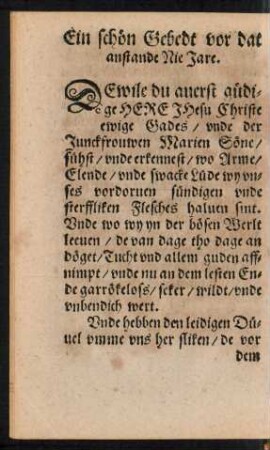 Ein schön Gebedt vor dat
anstande Nie Jare.
DEwile du auerst güdi-
ge HERE JHesu Christe
ewige Gades / vnde der
Junckfrouwen Marien Söne /
sühst / vnde erkennest / wo Arme /
Elende / vnde swacke Lüde wy vn-
ses vordoruen sündigen vnde
sterffliken Flesches haluen sint.
Vnde wo wy yn der bösen Werlt
leeuen / de van dage tho dage an
döget / Tucht vnd allem guden aff-
nimpt / vnde nu an dem lesten En-
de garrökeloss / seker / wildt / vnde
vnbendich wert.
Vnde hebben den leidigen Dü-
uel vmme vns her sliken / de vor
dem